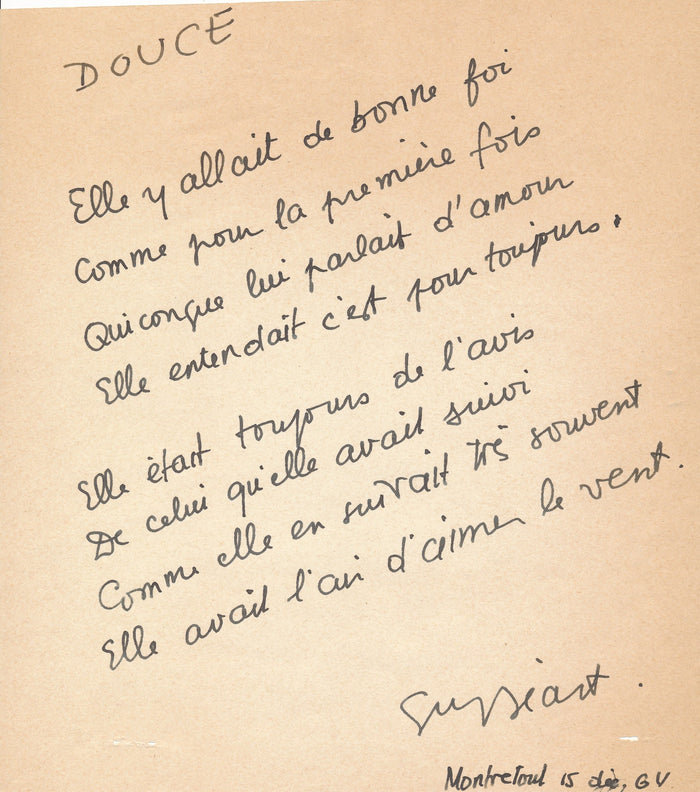 DOUCE
Elle y allait de bonne foi
Comme pour la première fois
Quiconque lui parlait d'amour
Elle entendait c'est pour toujours.
Elle était toujours de l'avis
De celui qu'elle avait suivi
Comme elle en suivait très souvent
Elle avait l'air d'aimer le vent.
Guy Béart.
Montretout 15 déc, GV